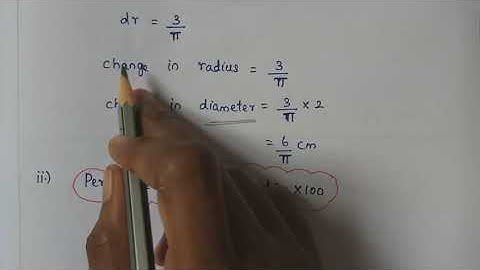 dr = 3/π
change in radius = 3/π
in diameter = 3/π × 2
= 6/π cm
ii.) ×100